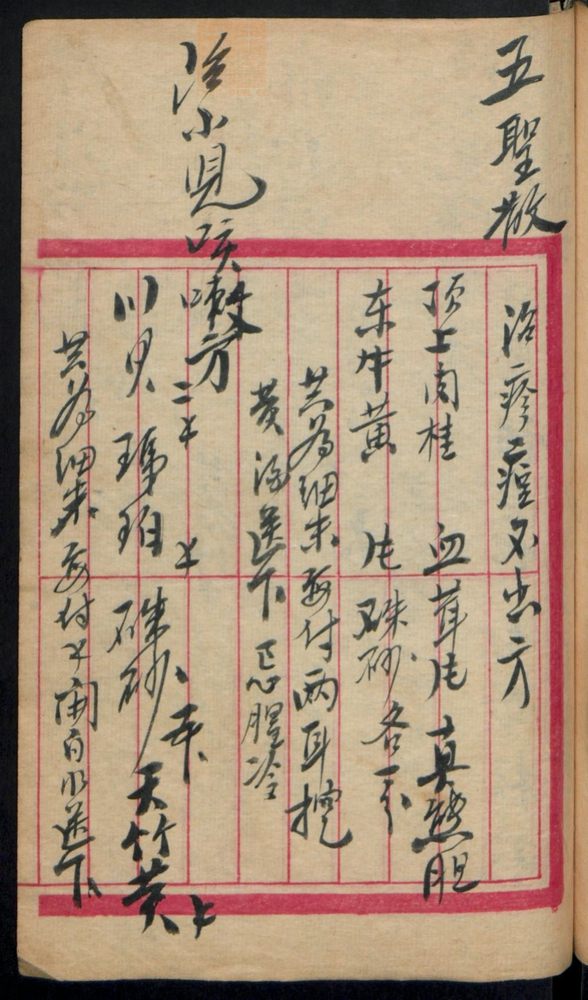 五聖散
治疹痘不出方
顶上肉桂 血茸片 真熊胆
东牛黄 片 硃砂 各一分
共为细末每付两耳挖
黄酒送下 忌腥冷
治小児咳嗽方
川贝 琥珀 硃砂 天竹黄
共为细末每付 開白水送下